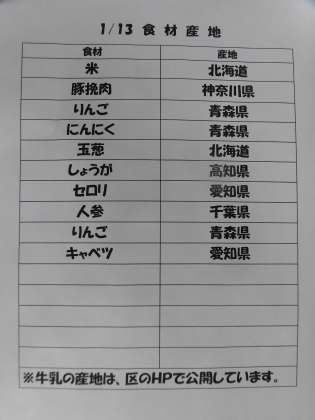 1/13 食材産地
食材 産地
米 北海道
豚挽肉 神奈川県
りんご 青森県
にんにく 青森県
玉葱 北海道
しょうが 高知県
セロリ 愛知県
人参 千葉県
りんご 青森県
キャベツ 愛知県
※牛乳の産地は、区のHPで公開しています。